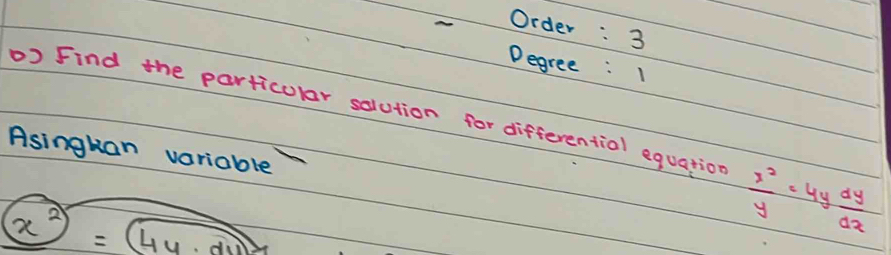 ~ Order : 3
Degree : 1
b) Find the particular solution for differential equation x²/y = 4y dy/dx
Asingkan variable ~
x² = 4y . dy